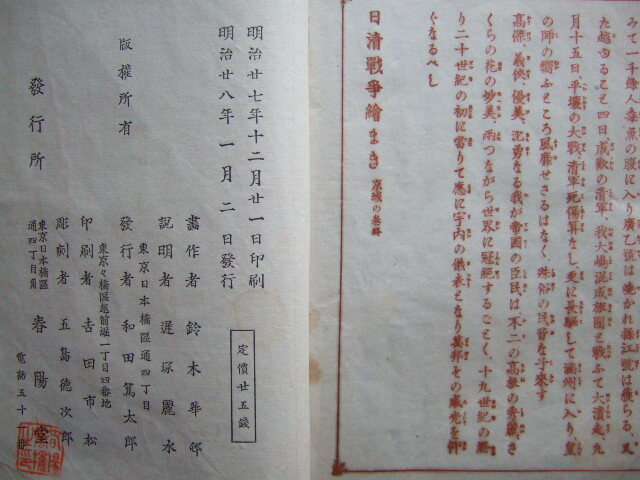 みて一千餘人魚の腹に入り廣乙號は燒かれ操江號は獲らる、又
た越ゆること四日成歡の淸軍我大嶋混成旅團と戰ふて大潰走、九
月十五日、平壤の大戰、淸軍死傷算なし、更に長驅して滿州に入り皇
の師の嚮ふところ風靡せさるはなく、殊俗の民皆な子來す
高傑、義俠、優美、沈勇なる我が帝國の臣民は、不二の高嶺の秀麗さ
くらの花の妙美、兩つながら世界に冠絕するごとく、十九世紀の終
り二十世紀の初に當りて應に宇内の儀表となり萬邦その威光を仰
ぐなるべし
日淸戰爭繪まき 京城の卷終
明治廿七年十二月廿一日印刷
明治廿八年一月二日發行
定價廿五錢
版權所有
畫作者 鈴木華邨
說明者 遲塚麗水
東京日本橋區通四丁目
發行者 和田篤太郎
東京々橋區越前堀一丁目四番地
印刷者 吉田市松
彫刻者 五島德次郎
發行所
東京日本橋區
通四丁目角
春陽堂
電話五十一番